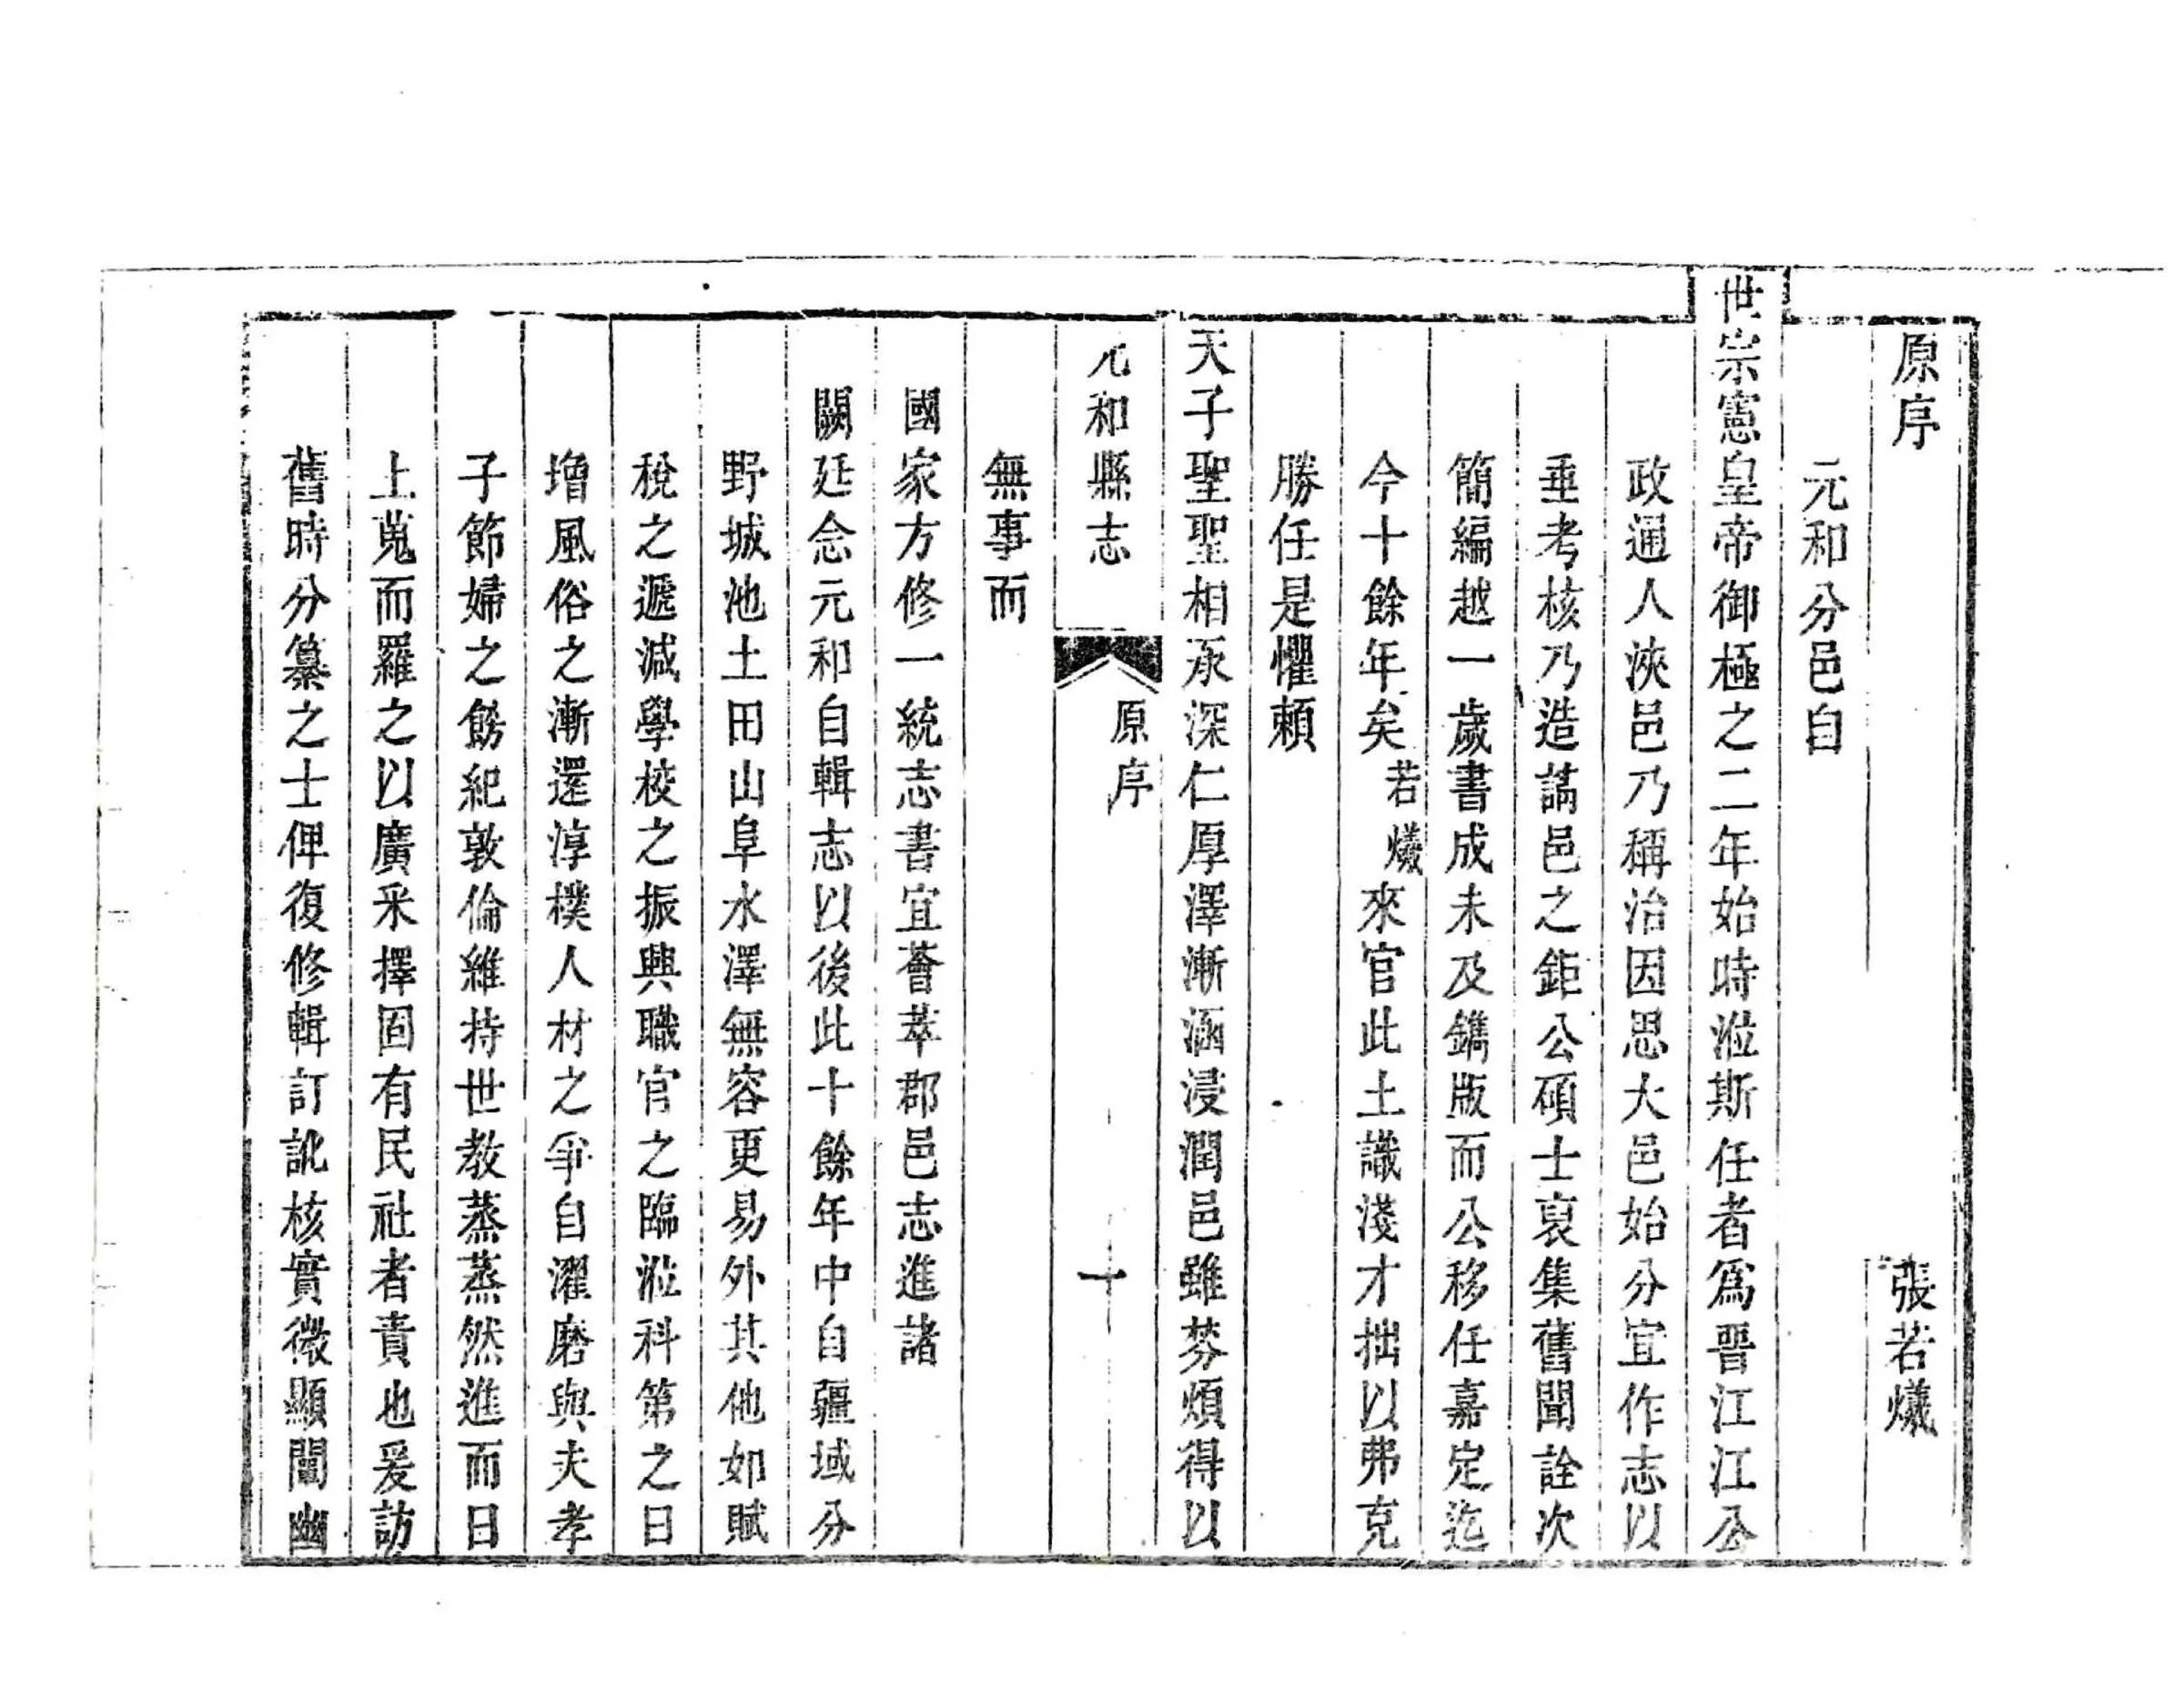 原序 張若爔
元和分邑自
世宗憲皇帝御極之二年始時涖斯任者爲晋江江公
政通人浹邑乃稱治因思大邑始分宜作志以
垂考核乃造謁邑之鉅公碩士裒集舊聞詮次
簡編越一歲書成未及鐫版而公移任嘉定迄
今十餘年矣若爔來官此土識淺才拙以弗克
勝任是懼賴
天子聖聖相承深仁厚澤漸涵浸潤邑雖棼煩得以
元和縣志 原序 十
無事而
國家方修一統志書宜薈萃郡邑志進諸
闕廷念元和自輯志以後此十餘年中自疆域分
野城池土田山阜水澤無容更易外其他如賦
稅之遞減學校之振興職官之臨涖科第之日
增風俗之漸還淳樸人材之爭自濯磨與夫孝
子節婦之飭紀敦倫維持世教蒸蒸然進而日
上蒐而羅之以廣釆擇固有民社者責也爰訪
舊時分纂之士俾復修輯訂訛核實微顯闡幽